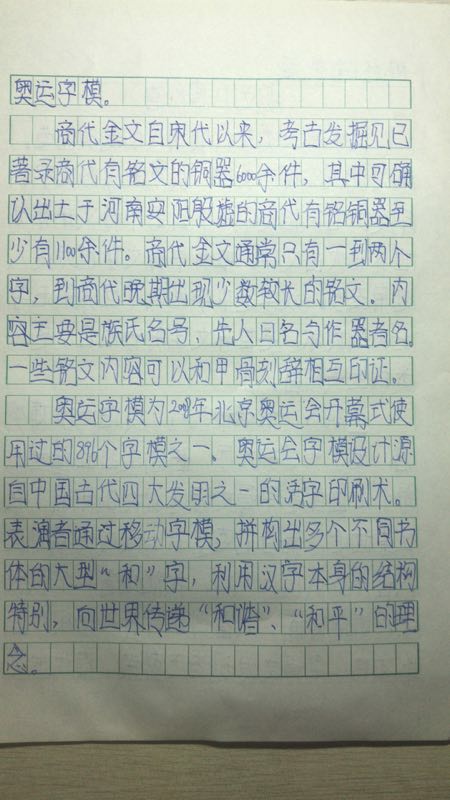 奥运字模。
商代金文自宋代以来，考古发掘见已
著录商代有铭文的铜器6000余件，其中可确
认出土于河南安阳殷墟的商代有铭铜器至
少有1100余件。商代金文通常只有一到两个
字，到商代晚期出现少数较长的铭文。内
容主要是族氏名号、先人日名与作器者名。
一些铭文内容可以和甲骨刻辞相互印证。
奥运字模为2008年北京奥运会开幕式使
用过的896个字模之一。奥运会字模设计源
自中国古代四大发明之一的活字印刷术。
表演者通过移动字模，拼构出多个不同书
体的大型“和”字，利用汉字本身的结构
特别，向世界传递“和谐”、“和平”的理
念。